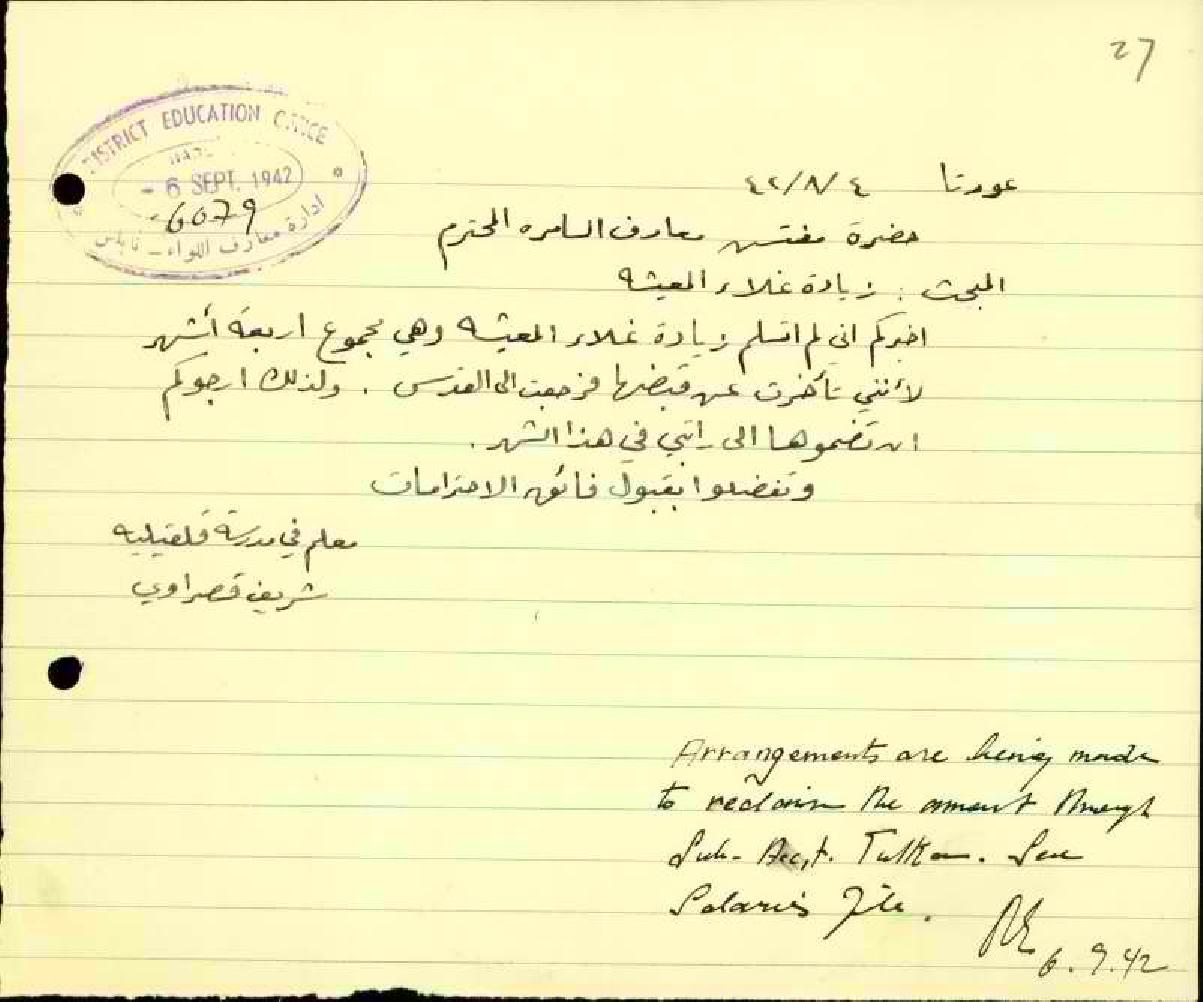 27
DISTRICT EDUCATION OFFICE
- 6 SEPT. 1942
6079
ادارة معارف اللواء - نابلس
عورتا ٤/٨/٤٢
حضرة مفتش معارف السامره المحترم
المبحث : زيادة غلاء المعيشه
اخبركم اني لم اتسلم زيادة غلاء المعيشه وهي مجموع اربعة أشهر
لأنني تأخرت عن قبضها فرجعت الى القدس . ولذلك ارجوكم
ان تضموها الى راتبي في هذا الشهر .
وتفضلوا بقبول فائق الاحترامات
معلم في مدرسة قلقيليه
شريف قصراوي
Arrangements are being made
to reclaim the amount through
Sub-Acct. Tulkarm. See
Salaries File.
6.9.42